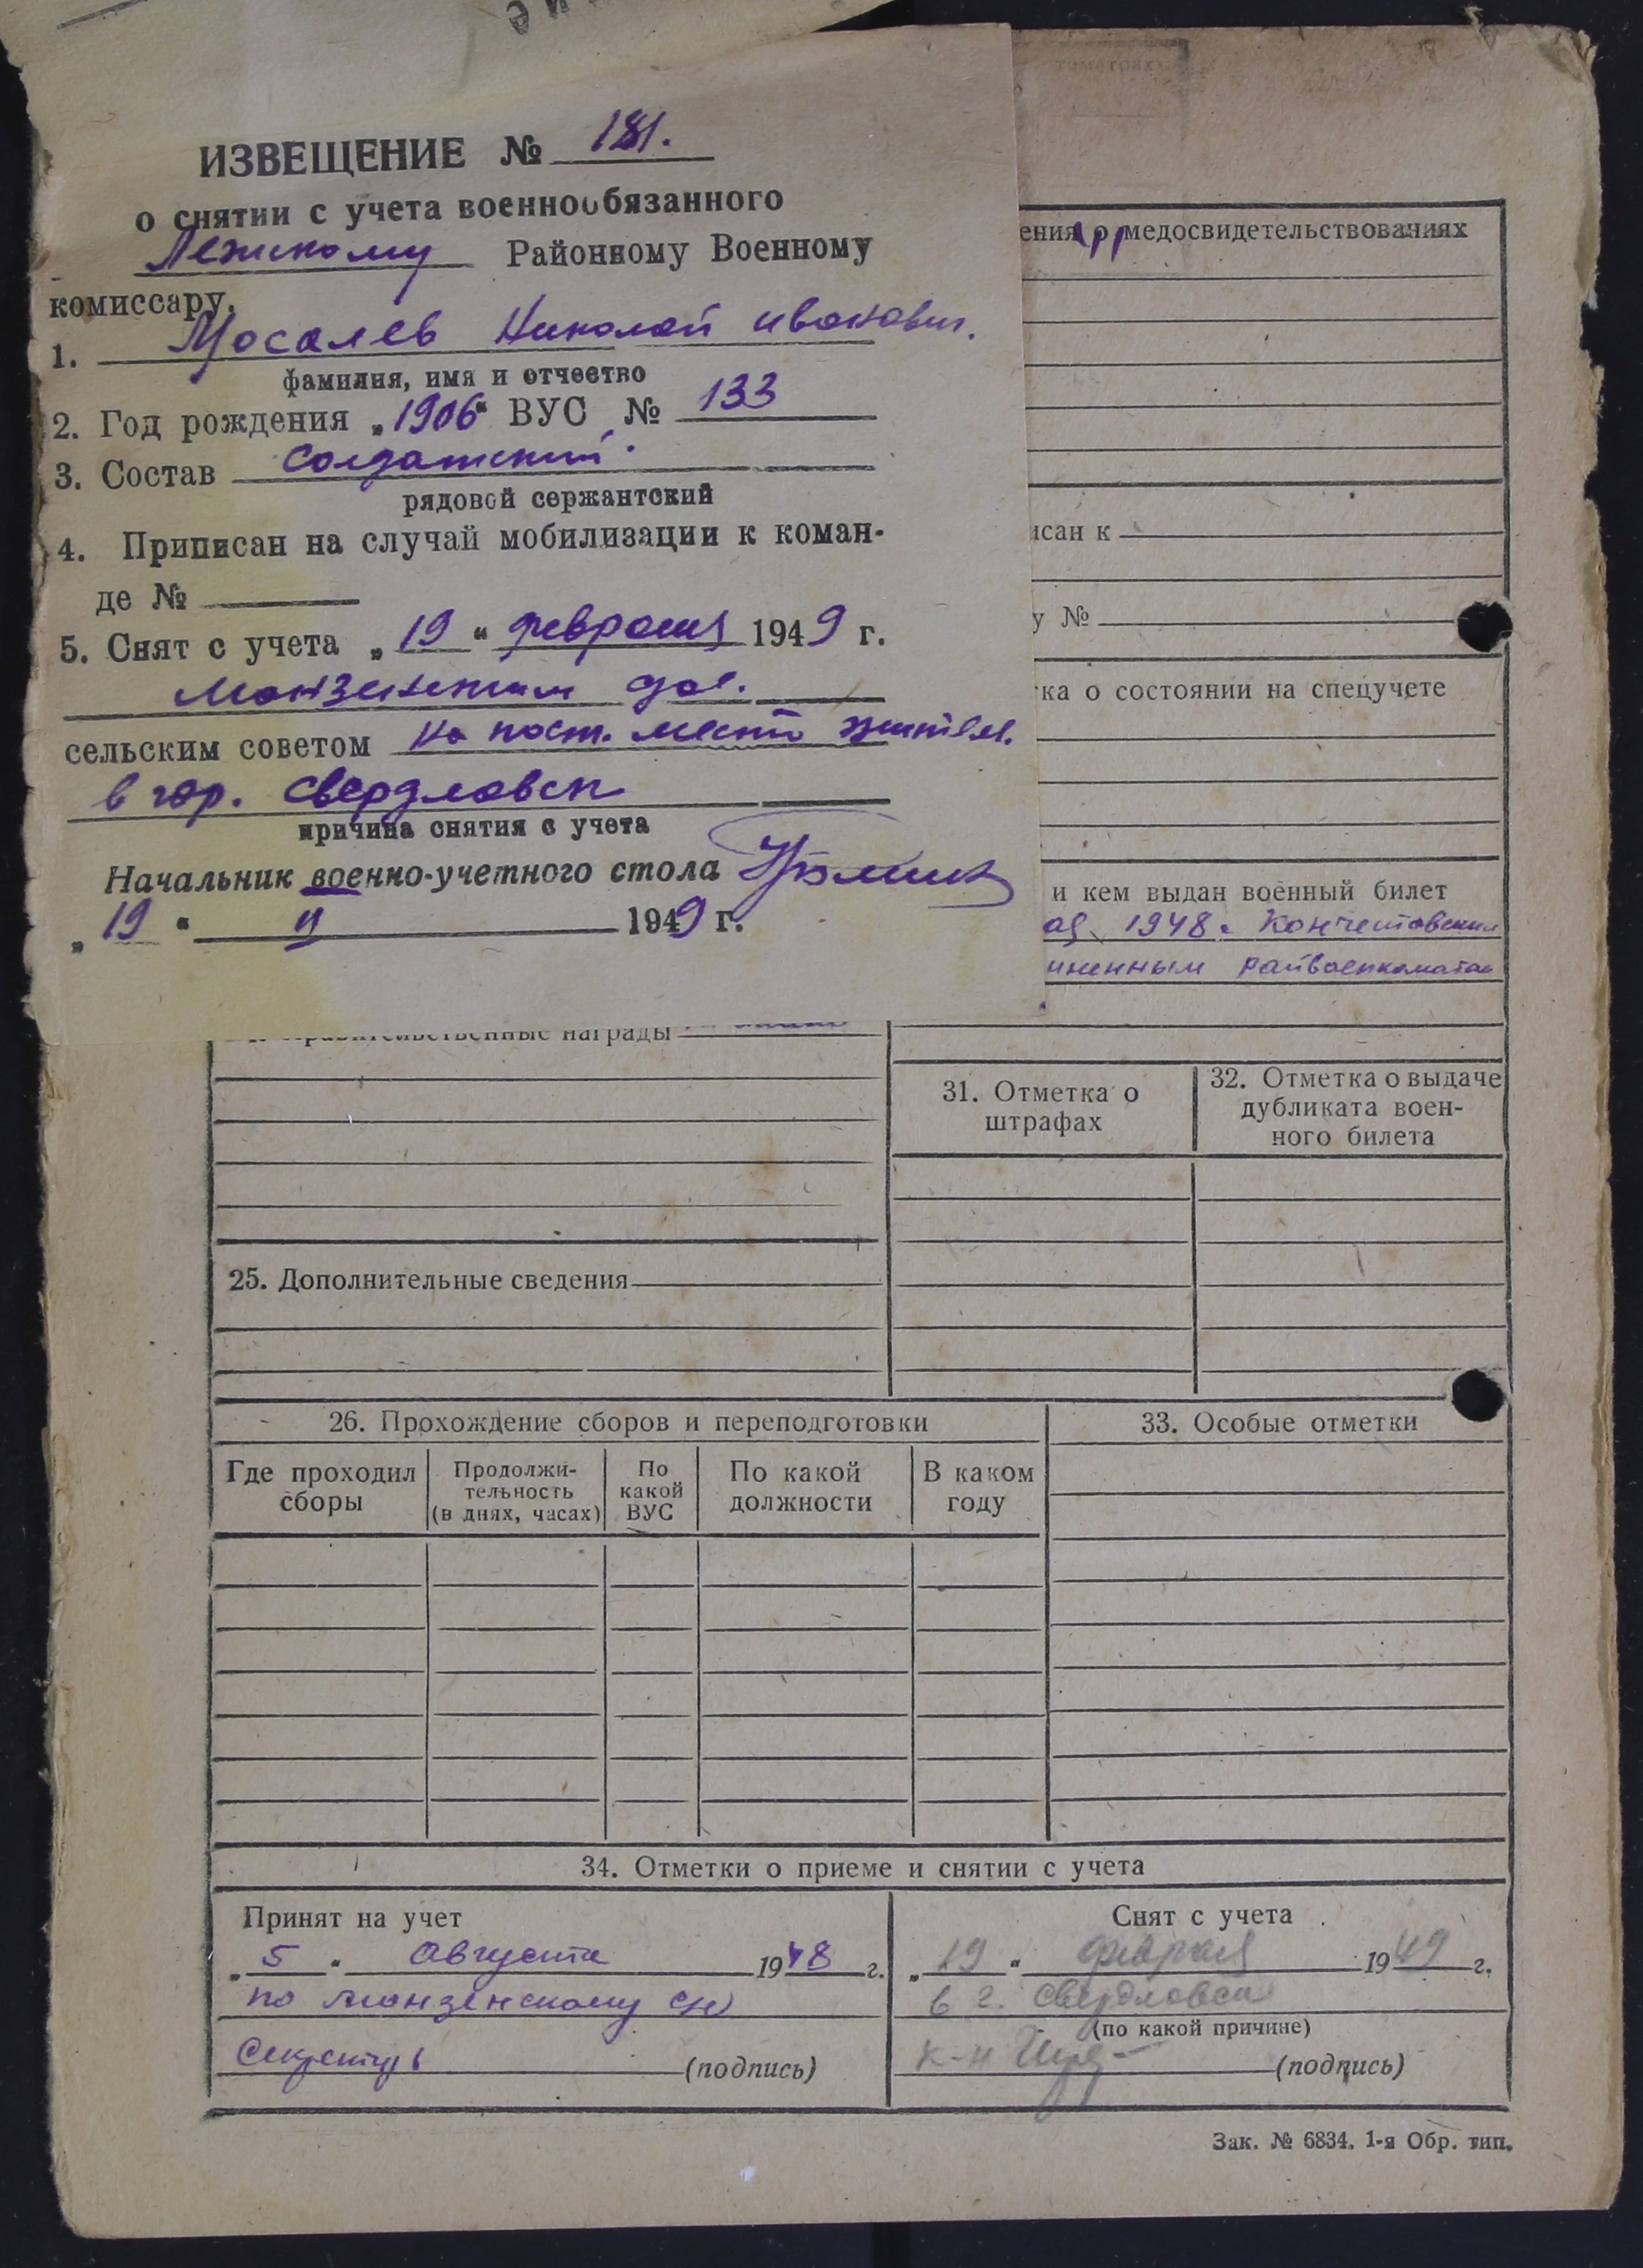 ИЗВЕЩЕНИЕ № 181.
о снятии с учета военнообязанного
Лежскому Районному Военному
комиссару.
1. Мосалев Николай иванович.
фамилия, имя и отчество
2. Год рождения „1906“ ВУС № 133
3. Состав Солдатский.
рядовой сержантский
4. Приписан на случай мобилизации к коман-
де №
5. Снят с учета „19“ февраля 1949 г.
Монзенским
сельским советом на пост. место жител.
в гор. Свердловск
причина снятия с учета
Начальник военно-учетного стола
„19“ II 1949 г.
ения о медосвидетельствованиях
исан к
у №
ка о состоянии на спецучете
и кем выдан военный билет
1948. 
иненным райвоенкоматом
награды
31. Отметка о
штрафах
32. Отметка о выдаче
дубликата воен-
ного билета
25. Дополнительные сведения
26. Прохождение сборов и переподготовки
Где проходил
сборы
Продолжи-
тельность
(в днях, часах)
По
какой
ВУС
По какой
должности
В каком
году
33. Особые отметки
34. Отметки о приеме и снятии с учета
Принят на учет
„5“ Августа 1948 г.
по монзенскому с/с
Секретарь (подпись)
Снят с учета
„19“ февраля 1949 г.
в г. Свердловск
(по какой причине)
к-н (подпись)
Зак. № 6834. 1-я Обр. тип.